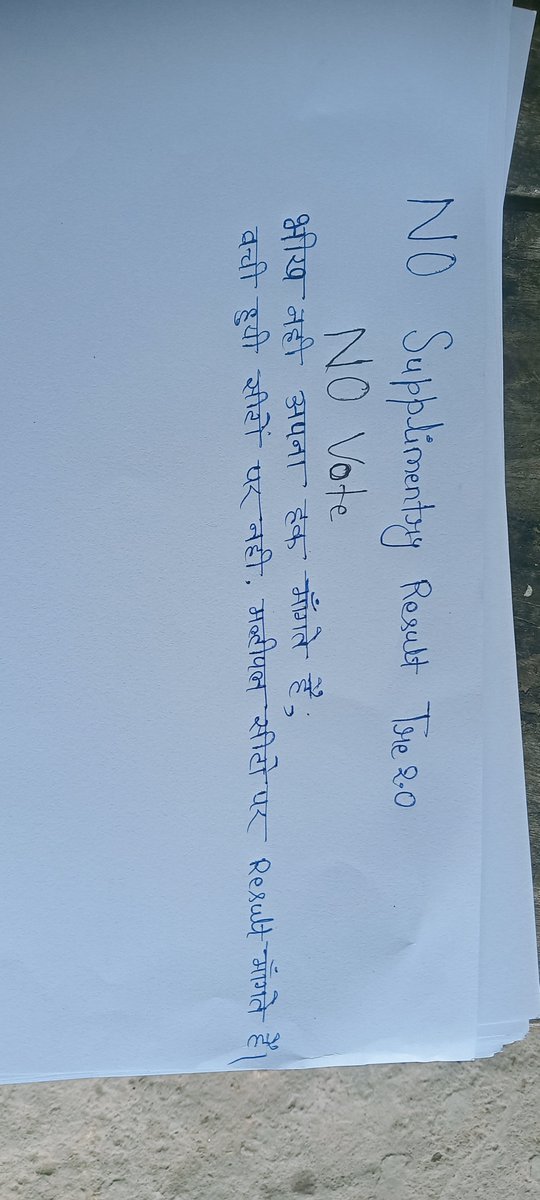 NO Supplimentry Result Tre 2.0
NO Vote
भीख नही अपना हक माँगते हैं;
बची हुयी सीटों पर नही. मल्टीपल सीटो पर Result माँगते हैं।